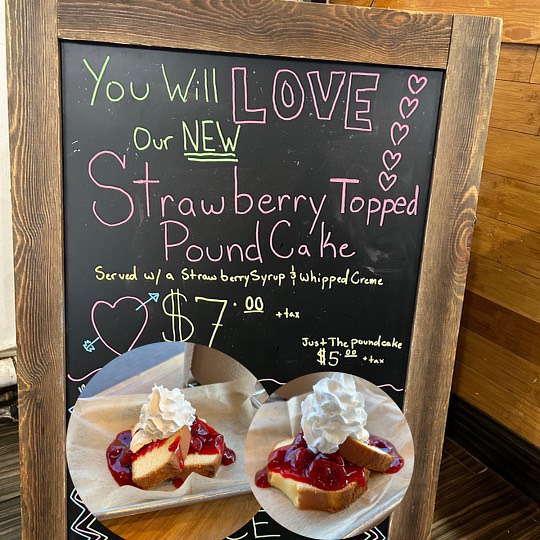 You Will LOVE
Our NEW
Strawberry Topped
Pound Cake
Served w/ a Strawberry Syrup & Whipped Creme
$7.00 + tax
Just The poundcake
$5.00 + tax